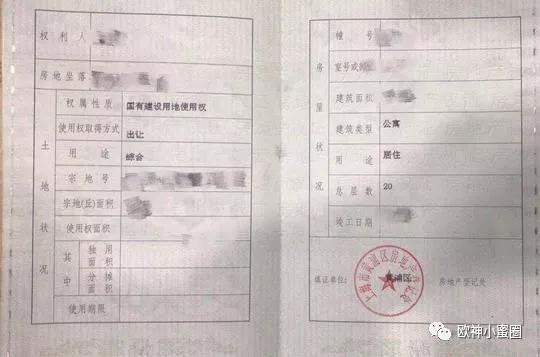 权利人
房地坐落
土地状况
权属性质 国有建设用地使用权
使用权取得方式 出让
用途 综合
宗地号
宗地(丘)面积
使用权面积
其中
独用面积
分摊面积
使用期限
房屋状况
幢号
室号或部位
建筑面积
建筑类型 公寓
用途 居住
总层数 20
竣工日期
填证单位: 黄浦区 房地产登记处
上海市黄浦区房地产登记处
欧神小蜜圈